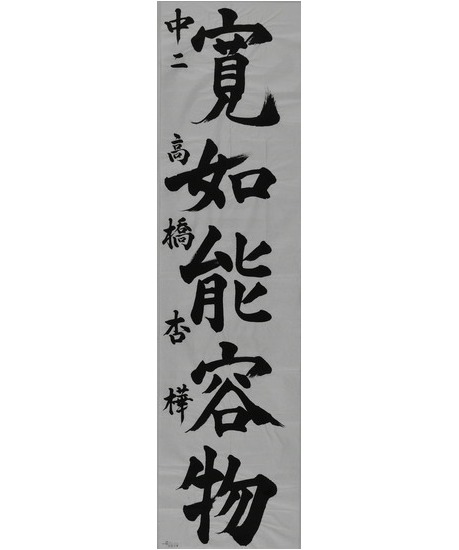 寛如能容物
中二 高橋 杏樺